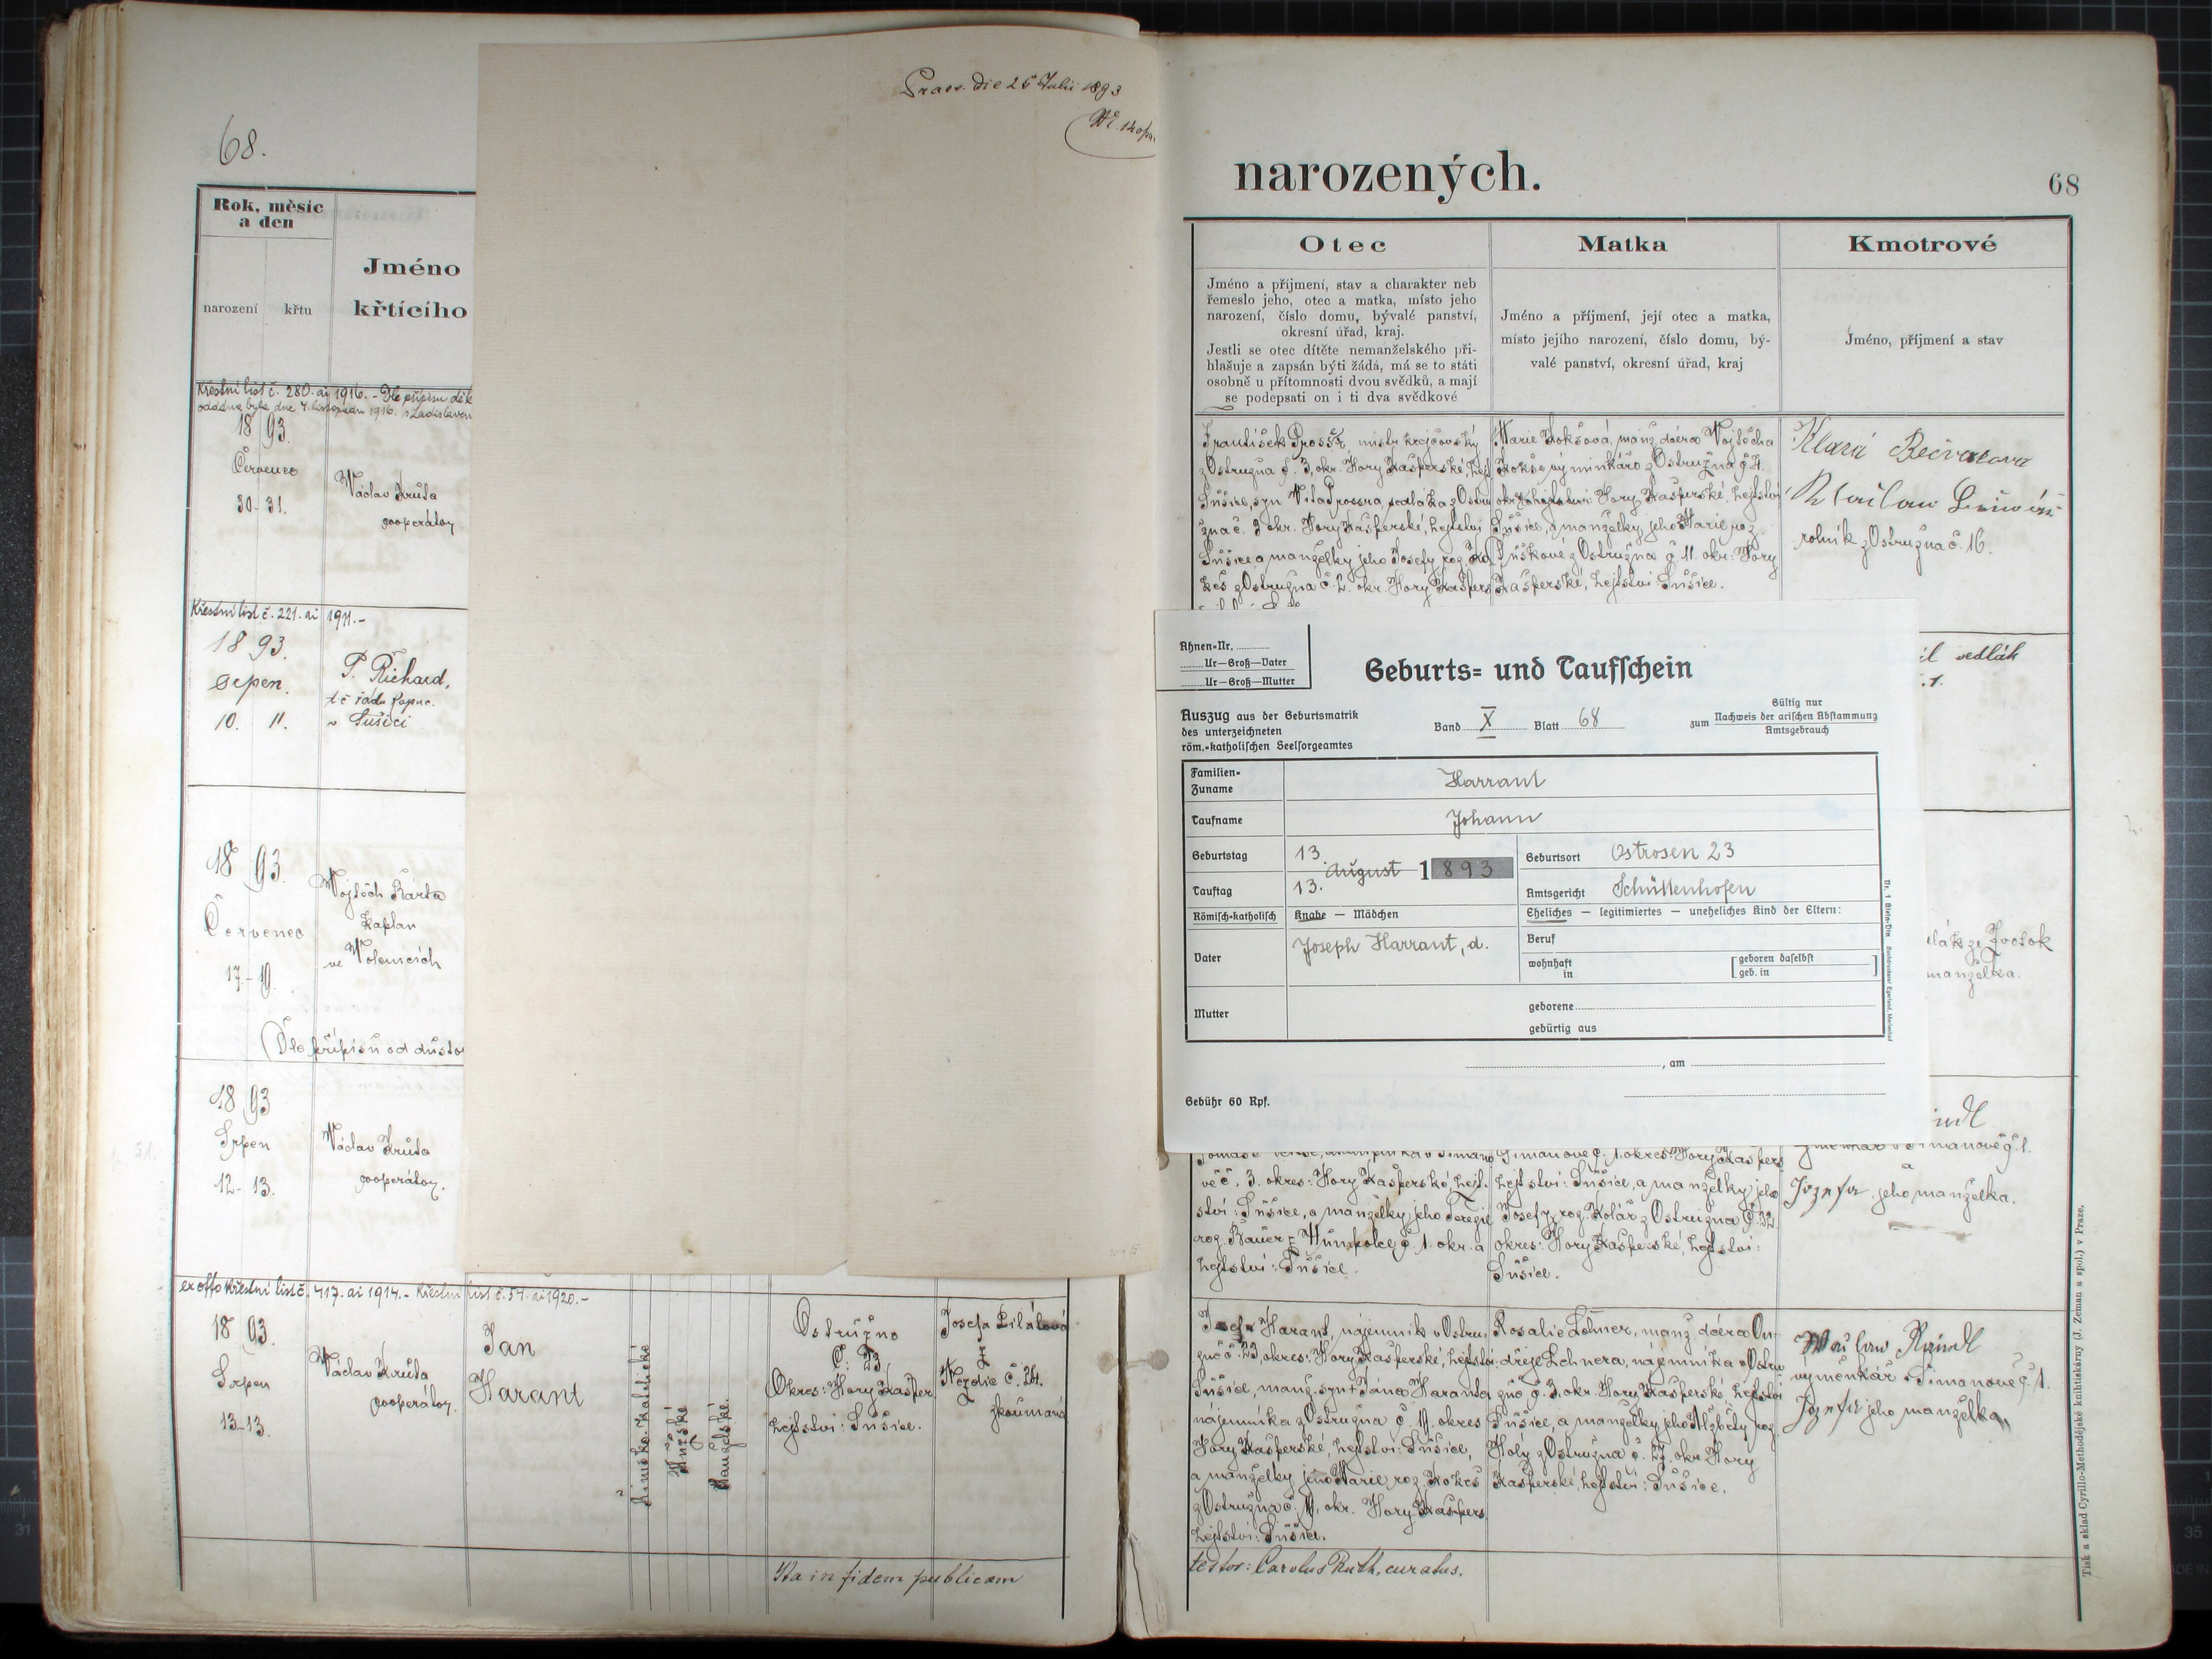 68.
Rok, měsíc
a den
narození
křtu
Jméno
křtícího
Křestní list č. 280. ai 1916. - Dle přípisu děk
oddána byla dne 7. listopadu 1916. s Ladislavem
18 93.
Červenec
30. 31.
Václav Kruta
cooperátor
Křestní list č. 221. ai 1911. -
18 93.
Srpen.
10. 11.
P. Richard,
t. č. řádu kapuc.
v Sušici
18 93.
Červenec
17.-19.
Vojtěch Bárta
kaplan
ve Volenicích
(Dle přípisu od důsto
18 93
Srpen
12.- 13.
Václav Kruta
cooperátor.
ex offo křestní list č. 417. ai 1914. - Křestní list č. 57. ai 1920. -
18 93.
Srpen
13.-13.
Václav Kruta
cooperátor.
Jan
Harant
Římsko-Katolické
Mužské
Manželské
Ostružno
č. 23
Okres: Hory Kašper.
hejtství: Sušice.
Josefa Pilátová
z
Nezdic č. 24.
zkoumaná
Ita in fidem publicam
Praes. die 26 Julii 1893
narozených.
68
Otec
Jméno a příjmení, stav a charakter neb
řemeslo jeho, otec a matka, místo jeho
narození, číslo domu, bývalé panství,
okresní úřad, kraj.
Jestli se otec dítěte nemanželského při-
hlašuje a zapsán býti žádá, má se to státi
osobně u přítomnosti dvou svědků, a mají
se podepsati on i ti dva svědkové
Matka
Jméno a příjmení, její otec a matka,
místo jejího narození, číslo domu, bý-
valé panství, okresní úřad, kraj
Kmotrové
Jméno, příjmení a stav
František Prosser, mistr krejčovský
z Ostružna č. 3, okr. Hory Kašperské, hejt
Sušice, syn Víta Prossra, sedláka z Ostru
žna č. 3 okr. Hory Kašperské, hejtství
Sušice a manželky jeho Josefy roz. Ko
keš z Ostružna č. 2. okr. Hory Kašpers
Marie Kokšová, manž. dcera Vojtěcha
Kokše výminkáře z Ostružna č. 4.
okr. hejtství: Hory Kašperské, hejtství
Sušice, a manželky jeho Marie roz.
Duškové z Ostružna č. 11. okr. Hory
Kašperské, hejtství Sušice.
rolník z Ostružna č. 16.
sedlák
Ahnen-Nr.
Ur—Groß—Vater
Ur—Groß—Mutter
Geburts- und Taufschein
Auszug aus der Geburtsmatrik
des unterzeichneten
röm.-katholischen Seelsorgeamtes
Band X Blatt 68
Gültig nur
zum Nachweis der arischen Abstammung
Amtsgebrauch
Familien-
Zuname
Harrant
Taufname
Johann
Geburtstag
13.
August 1893
Tauftag
13.
Geburtsort Ostrosen 23
Amtsgericht Schüttenhofen
Römisch-katholisch
Knabe — Mädchen
Eheliches — legitimiertes — uneheliches Kind der Eltern:
Vater
Joseph Harrant, d.
Beruf
wohnhaft
in
geboren daselbst
geb. in
Mutter
geborene
gebürtig aus
, am
Gebühr 60 Rpf.
manželka.
vě č. 3. okres: Hory Kašperské, hejt.
ství: Sušice, a manželky jeho Terezie
roz. Bauer z Humpolce č. 1. okr. a
hejtství: Sušice.
Šimanově č. 1. okres: Hory Kašpers
hejtství: Sušice, a manželky jeho
Josefy roz. Kolář z Ostružna č. 32.
okres: Hory Kašperské, hejtství:
Sušice.
výměnkář v Šimanově č. 1.
a
Jozefa jeho manželka.
Josef Harant, nájemník v Ostru
žně č. 23, okres: Hory Kašperské, hejtství:
Sušice, manž. syn + Jána Haranta
nájemníka z Ostružna č. 11. okres
Hory Kašperské, hejtství: Sušice,
a manželky jeho Marie roz. Kokeš
z Ostružna č. 11, okr. Hory Kašpers.
hejtství: Sušice.
Rosalie Lehner, manž. dcera On-
dřeje Lehnera, nájemníka v Ostru-
žně č. 3. okr. Hory Kašperské hejtství
Sušice, a manželky jeho Alžběty roz.
Holý z Ostružna č. 27. okr. Hory
Kašperské, hejtství: Sušice.
Václav Reindl
výměnkář v Šimanově č. 1.
Jozefa jeho manželka
testor: Carolus Ruth, curatus.
Tisk a sklad Cyrillo-Methodějské knihtiskárny (J. Zeman a spol.) v Praze.